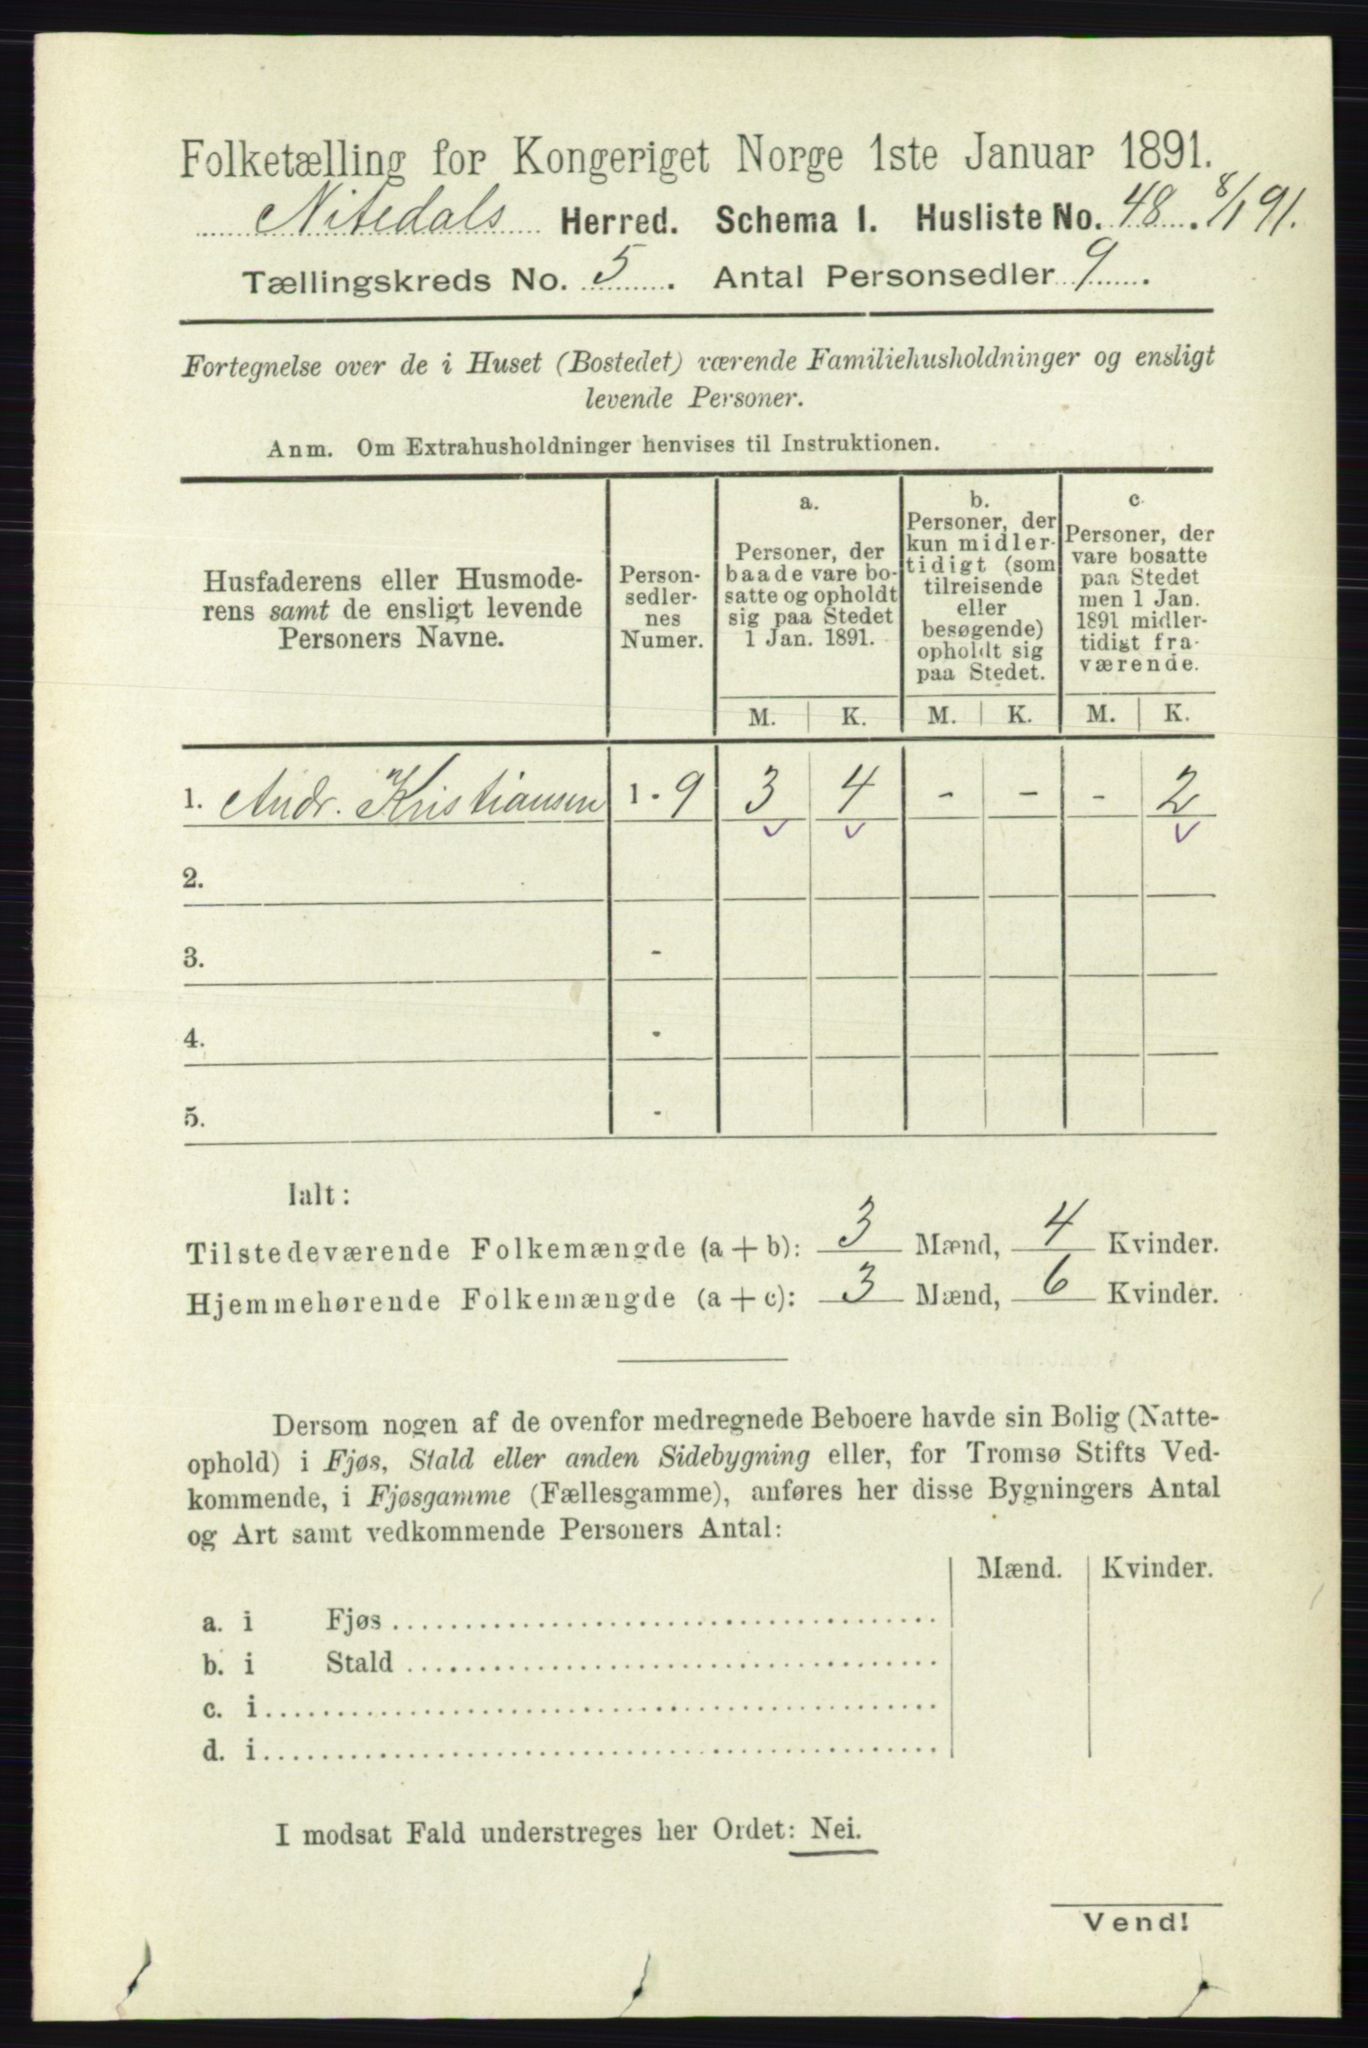 Folketælling for Kongeriget Norge 1ste Januar 1891.
Nitedals Herred. Schema 1. Husliste No. 48. 8/1 91.
Tællingskreds No. 5. Antal Personsedler 9.
Fortegnelse over de i Huset (Bostedet) værende Familiehusholdninger og ensligt
levende Personer.
Anm. Om Extrahusholdninger henvises til Instruktionen.
Husfaderens eller Husmode-
rens samt de ensligt levende
Personers Navne.
Person-
sedler-
nes
Numer.
a.
Personer, der
baade vare bo-
satte og opholdt
sig paa Stedet
1 Jan. 1891.
b.
Personer, der
kun midler-
tidigt (som
tilreisende
eller
besøgende)
opholdt sig
paa Stedet.
c.
Personer, der
vare bosatte
paa Stedet
men 1 Jan.
1891 midler-
tidigt fra-
værende.
M. K. M. K. M. K.
1. Andr. Kristiansen 1 - 9 3 4 - - - 2
2.
3. -
4. -
5. -
Ialt:
Tilstedeværende Folkemængde (a + b): 3 Mænd, 4 Kvinder.
Hjemmehørende Folkemængde (a + c): 3 Mænd, 6 Kvinder.
Dersom nogen af de ovenfor medregnede Beboere havde sin Bolig (Natte-
ophold) i Fjøs, Stald eller anden Sidebygning eller, for Tromsø Stifts Ved-
kommende, i Fjøsgamme (Fællesgamme), anføres her disse Bygningers Antal
og Art samt vedkommende Personers Antal:
Mænd. Kvinder.
a. i Fjøs
b. i Stald
c. i
d. i
I modsat Fald understreges her Ordet: Nei.
Vend!